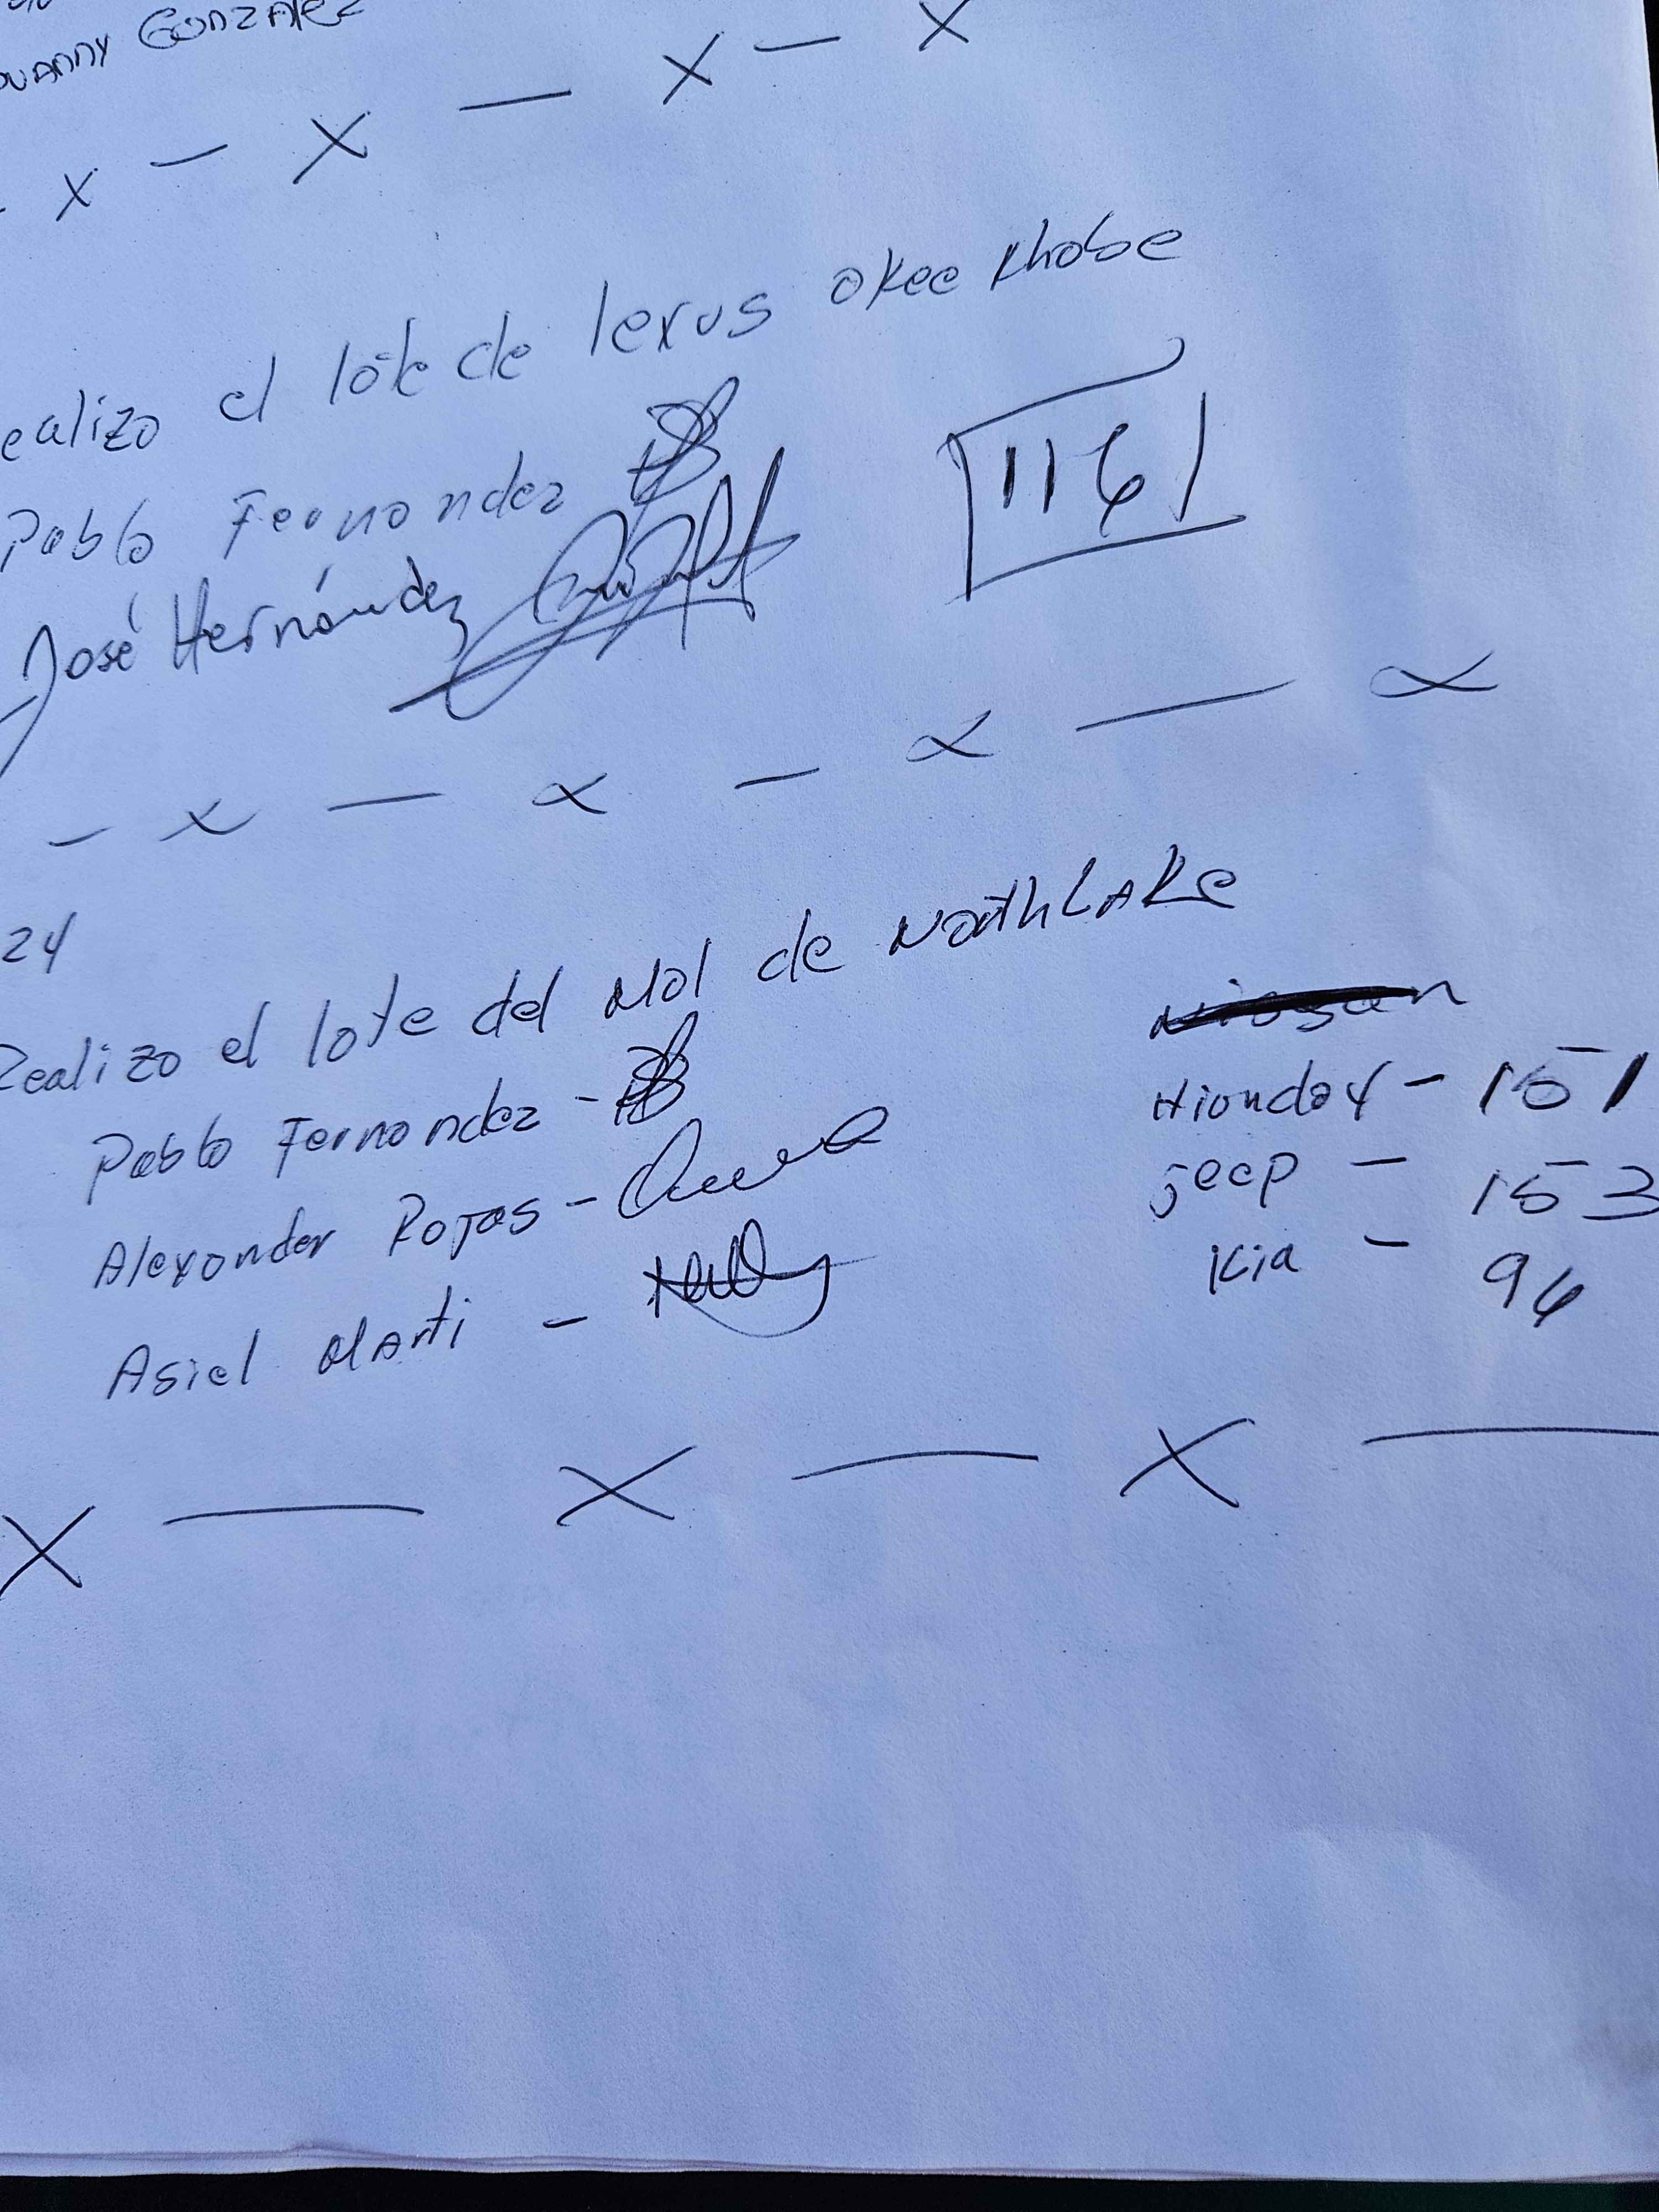 GONZALEZ
x — X — X — X
ealizo el lote de lexus okee khobe
Pablo Fernandez
1161
José Hernández
— x — x — x — x
24
Realizo el lote del Mol de NorthLAKe
Nissan
Pablo Fernandez -
Hionday - 151
Alexander Rojas -
jeep - 153
Asiel Marti -
Kia - 96
X — X — X —